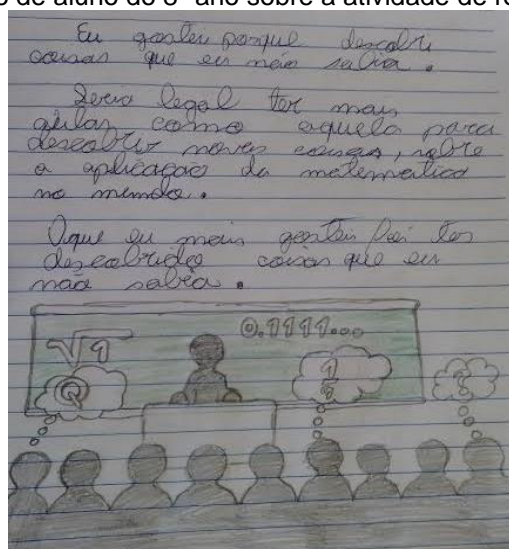 de aluno do 8º ano sobre a atividade de
Eu gostei porque descobri
coisas que eu não sabia.
Seria legal ter mais
aulas como aquela para
descobrir novas coisas, sobre
a aplicação da matemática
no mundo.
Oque eu mais gostei foi ter
descobrido coisas que eu
não sabia.
√1
0.1111...
Q
1
?